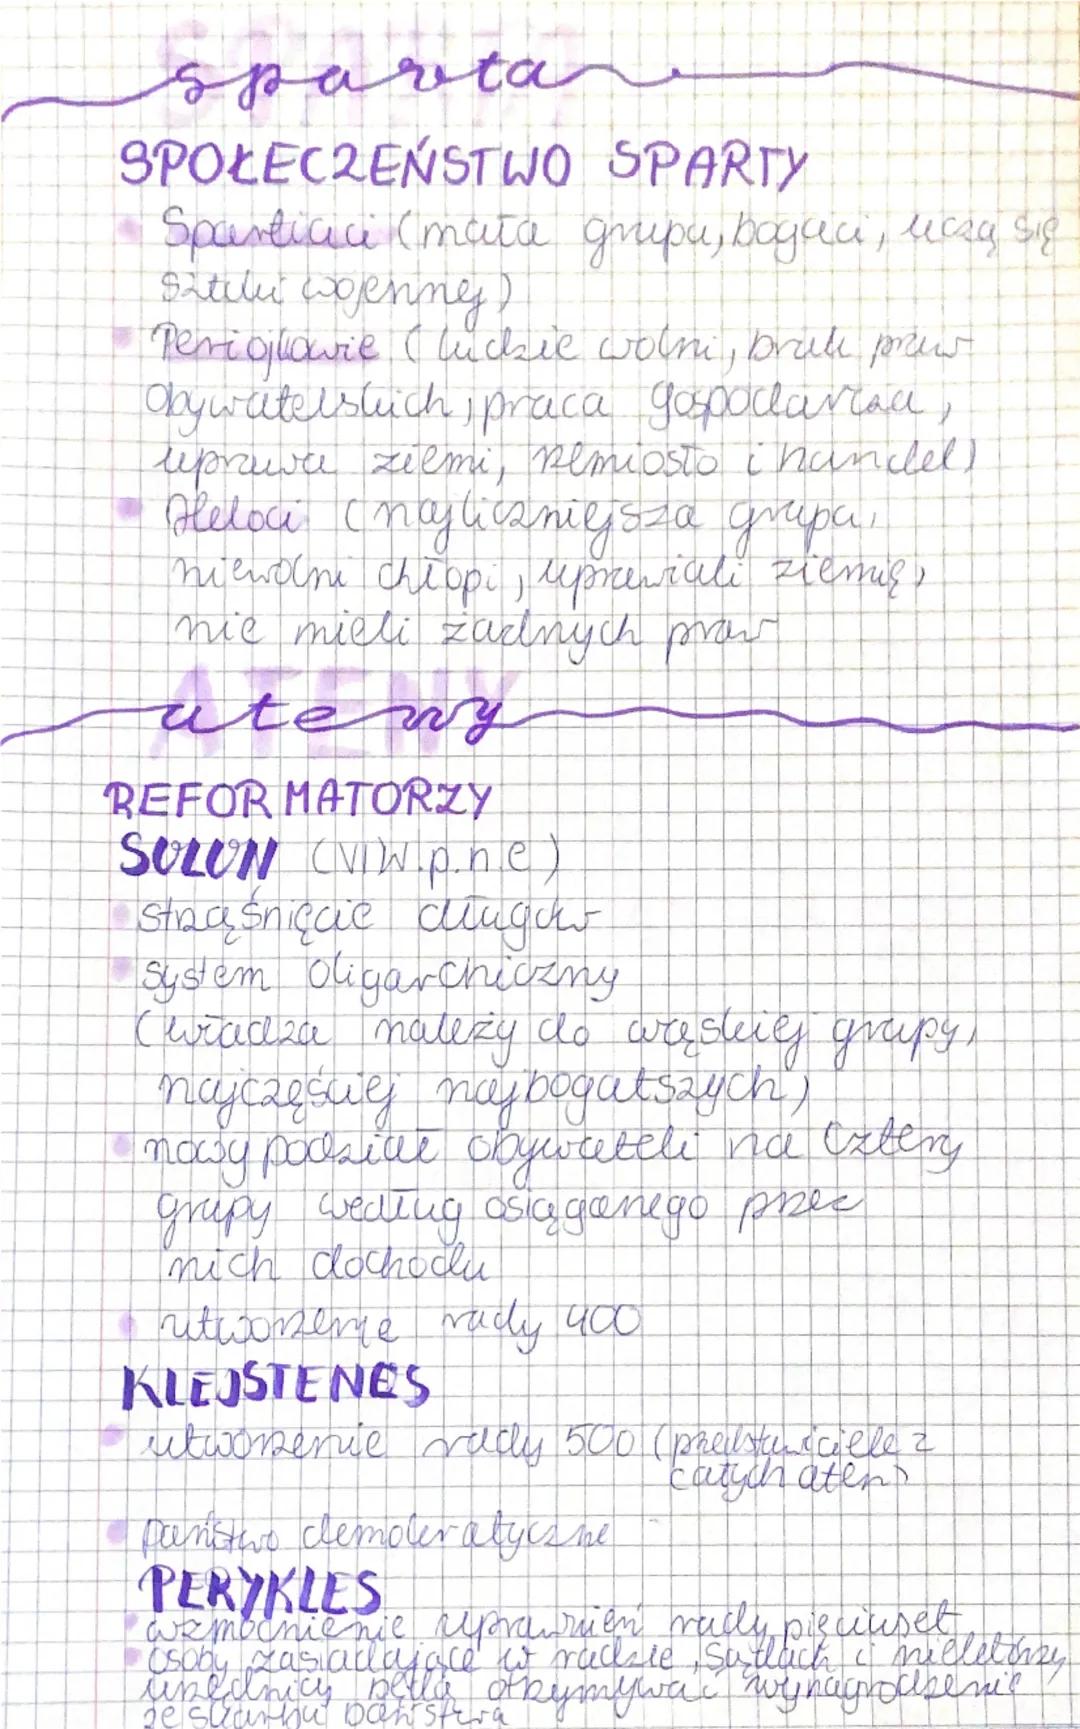 sparta
SPOŁECZEŃSTWO SPARTY
Spartiaci (mała grupa, bogaci, uczą się
sztuki wojennej)
Periojkowie (ludzie wolni, brak praw
obywatelskich, praca gospodarcza,
uprawa ziemi, rzemiosło i handel)
Heloci (najliczniejsza grupa,
niewolni chłopi, uprawiali ziemię,
nie mieli żadnych praw
ateny
REFORMATORZY
SOLON (VI W.p.n.e)
strząśnięcie długów
system oligarchiczny
(władza należy do wąskiej grupy,
najczęściej najbogatszych)
nowy podział obywateli na cztery
grupy według osiąganego przez
nich dochodu
utworzenie rady 400
KLEJSTENES
utworzenie rady 500 (przedstawiciele z
całych aten)
państwo demokratyczne
PERYKLES
wzmocnienie uprawnień rady pięciuset
osoby zasiadające w radzie, sądach i niektórzy
urzędnicy będą otrzymywać wynagrodzenie
ze skarbu państwa